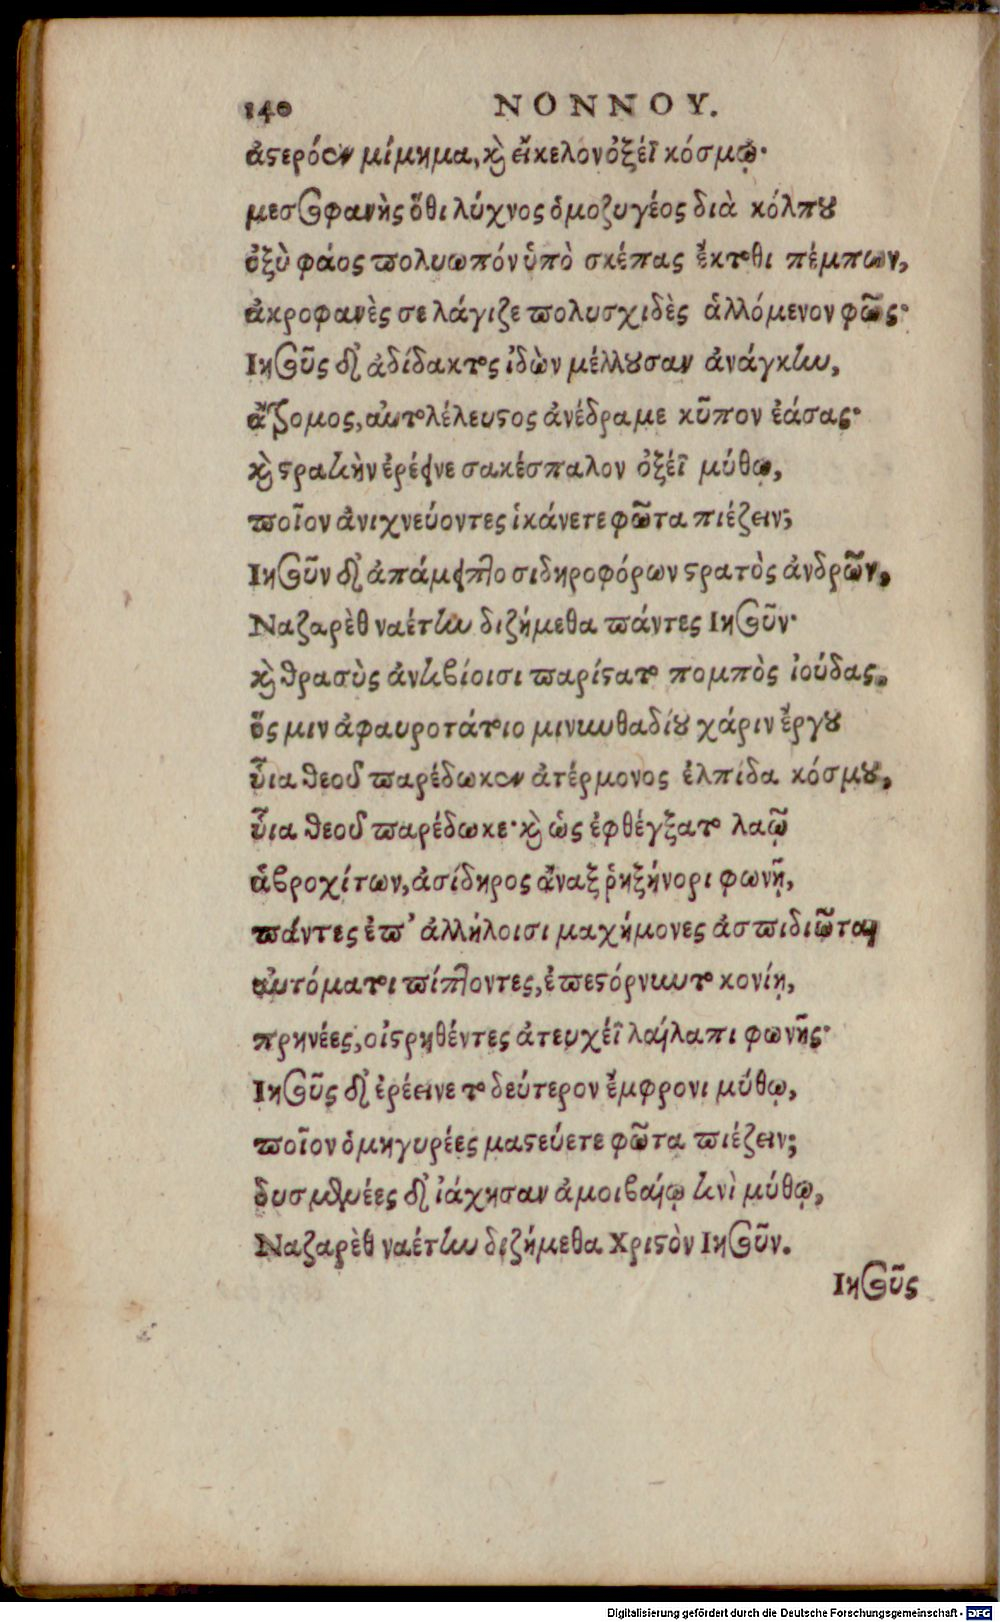 140 ΝΟΝΝΟΥ.
ἀστερόεν μίμημα, καὶ εἴκελον ὀξέϊ κόσμῳ·
μεσσοφανὴς ὅθι λύχνος ὁμοζυγέος διὰ κόλπου
ὀξὺ φάος πολυωπόν ὑπὸ σκέπας ἔκτοθι πέμπων,
ἀκροφανὲς σελάγιζε πολυσχιδὲς ἁλλόμενον φῶς·
Ιησοῦς δ' ἀδίδακτος ἰδὼν μέλλουσαν ἀνάγκην,
ἄτρομος, αὐτοκέλευστος ἀνέδραμε κῆπον ἐάσας·
καὶ στρατιὴν ἐρέεινε σακέσπαλον ὀξέϊ μύθῳ,
ποῖον ἀνιχνεύοντες ἱκάνετε φῶτα πιέζειν;
Ιησοῦν δ' ἀπάμειπτο σιδηροφόρων στρατὸς ἀνδρῶν,
Ναζαρὲθ ναέτην διζήμεθα πάντες Ιησοῦν·
καὶ θρασὺς ἀντιβίοισι παρίστατο πομπὸς ἰούδας.
ὅς μιν ἀφαυροτάτοιο μινυνθαδίου χάριν ἔργου
υἷα θεοῦ παρέδωκεν ἀτέρμονος ἐλπίδα κόσμου,
υἷα θεοῦ παρέδωκε· καὶ ὡς ἐφθέγξατο λαῷ
ἁβροχίτων, ἀσίδηρος ἄναξ ῥηξήνορι φωνῇ,
πάντες ἐπ' ἀλλήλοισι μαχήμονες ἀσπιδιῶται
αὐτόματοι πίπτοντες, ἐπεστόρνυντο κονίῃ,
πρηνέες, οἰστρηθέντες ἀτευχέϊ λαίλαπι φωνῆς·
Ιησοῦς δ' ἐρέεινε το δεύτερον ἔμφρονι μύθῳ,
ποῖον ὁμηγυρέες μαστεύετε φῶτα πιέζειν;
δυσμενέες δ' ἰάχησαν ἀμοιβαίῳ τινὶ μύθῳ,
Ναζαρὲθ ναέτην διζήμεθα Χριστὸν Ιησοῦν.
Ιησοῦς
Digitalisierung gefördert durch die Deutsche Forschungsgemeinschaft - DFG